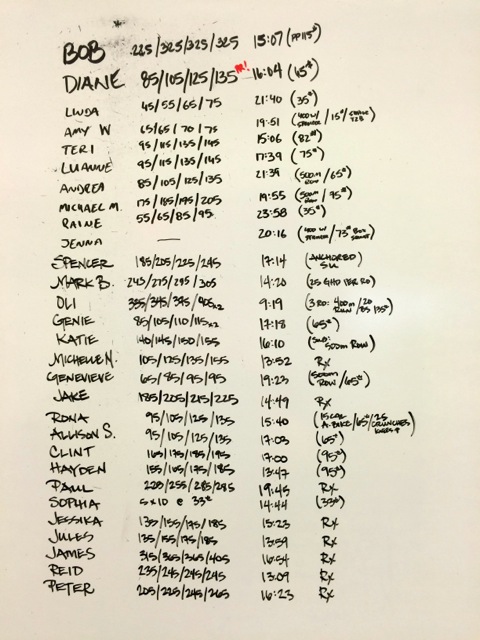 BOB 225/325/325/325 15:07 (PP115#)
DIANE 85/105/125/135 PR! 16:04 (65#)
LINDA 45/55/65/75 21:40 (35#)
AMY W 65/65/70/75 19:51 (400 W /15#/
TERI 95/115/135/145 15:06 (82#)
LUANNE 95/115/135/145 17:39 (75#)
ANDREA 85/105/125/135 21:39 (500m ROW /65#)
MICHAEL M. 175/185/195/205 19:55 (500m ROW /95#)
RAINE 55/65/85/95 23:58 (35#)
JENNA — 20:16 (400 W /73# BOX
SPENCER 185/205/225/245 17:14 (ANCHORED SU
MARK B. 245/275/295/305 14:20 (25 GHD PER RD)
OLI 335/345/395/405x2 9:19 (3 RD: 400m RUN /20 135#)
GENIE 85/105/110/115x2 17:18 (65#)
KATIE 140/145/150/155 16:10 (SUB: 500m ROW)
MICHELLE N. 105/125/135/155 13:52 Rx
GENEVIEVE 65/85/95/95 19:23 (500m ROW /65#)
JAKE 185/205/215/225 14:49 Rx
RONA 95/105/125/135 15:40 (15 CAL A.BIKE /65#/25 CRUNCHES
ALLISON S. 95/105/125/135 17:03 (65#)
CLINT 165/175/185/195 17:00 (95#)
HAYDEN 155/165/175/185 13:47 (95#)
PAUL 225/255/285/285 19:45 Rx
SOPHIA 5x10 @ 33# 14:44 (33#)
JESSIKA 135/155/175/185 15:23 Rx
JULES 135/155/175/185 13:59 Rx
JAMES 315/365/365/405 16:54 Rx
REID 235/245/245/245 13:09 Rx
PETER 205/225/245/265 16:23 Rx